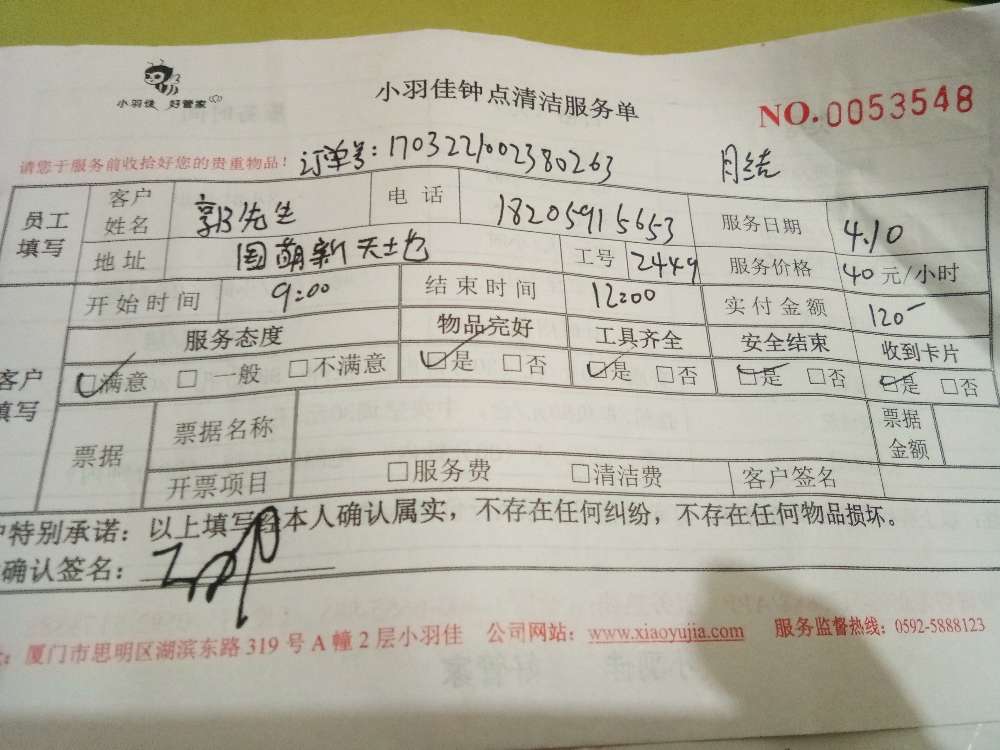 小羽佳 好管家
小羽佳钟点清洁服务单
NO.0053548
请您于服务前收拾好您的贵重物品! 订单号:1703221002380263 月结
员工填写 客户姓名 郭先生 电话 18205915653 服务日期 4.10
地址 国萌新天地 工号 2449 服务价格 40元/小时
开始时间 9:00 结束时间 12:00 实付金额 120
服务态度 物品完好 工具齐全 安全结束 收到卡片
客户填写 ☑满意 □一般 □不满意 ☑是 □否 ☑是 □否 ☑是 □否 ☑是 □否
票据 票据名称 票据金额
开票项目 □服务费 □清洁费 客户签名
户特别承诺:以上填写经本人确认属实,不存在任何纠纷,不存在任何物品损坏。
确认签名:
:厦门市思明区湖滨东路319号A幢2层小羽佳 公司网站:www.xiaoyujia.com 服务监督热线:0592-5888123